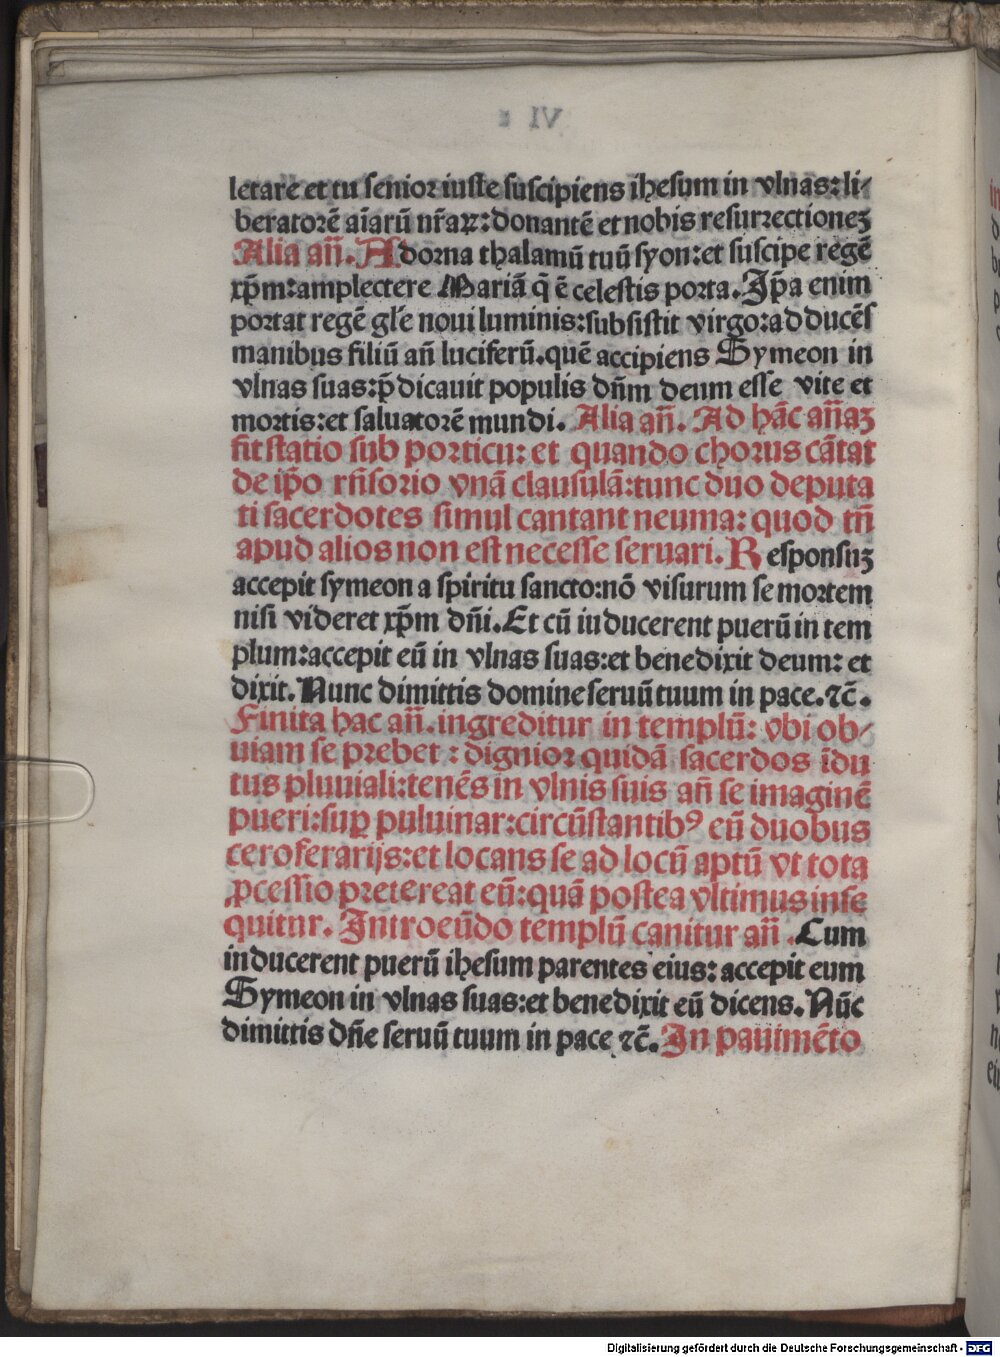 letare et tu senior iuste suscipiens ihesum in vlnas: li⸗
beratorē aīarū nr̄aꝝ: donantē et nobis resurrectioneꝫ
Alia an̄. Adorna thalamū tuū syon: et suscipe regē
xp̄m: amplectere Mariā q̄ ē celestis porta. Ip̄a enim
portat regē gl̄e noui luminis: subsistit virgo: adducēs
manibus filiū an̄ luciferū. quē accipiens Symeon in
vlnas suas: p̄dicauit populis dn̄m deum esse vite et
mortis: et saluatorē mundi. Alia an̄. Ad hāc an̄aꝫ
fit statio sub porticu: et quando chorus cātat
de ip̄o rn̄sorio vnā clausulā: tunc duo deputa
ti sacerdotes simul cantant neuma: quod tn̄
apud alios non est necesse seruari. Responsuꝫ
accepit symeon a spiritu sancto: nō visurum se mortem
nisi videret xp̄m dn̄i. Et cū inducerent puerū in tem
plum: accepit eū in vlnas suas: et benedixit deum: et
dixit. Nunc dimittis domine seruū tuum in pace. ⁊c̄.
Finita hac an̄. ingreditur in templū: vbi ob⸗
uiam se prebet: dignior quidā sacerdos īdu
tus pluuiali: tenēs in vlnis suis an̄ se imaginē
pueri: suꝑ puluinar: circūstantibꝰ eū duobus
ceroferarijs: et locans se ad locū aptū vt tota
ꝓcessio pretereat eū: quā postea vltimus inse
quitur. Introeūdo templū canitur an̄. Cum
inducerent puerū ihesum parentes eius: accepit eum
Symeon in vlnas suas: et benedixit eū dicens. Nūc
dimittis dn̄e seruū tuum in pace ⁊c̄. In pauimēto
Digitalisierung gefördert durch die Deutsche Forschungsgemeinschaft - DFG